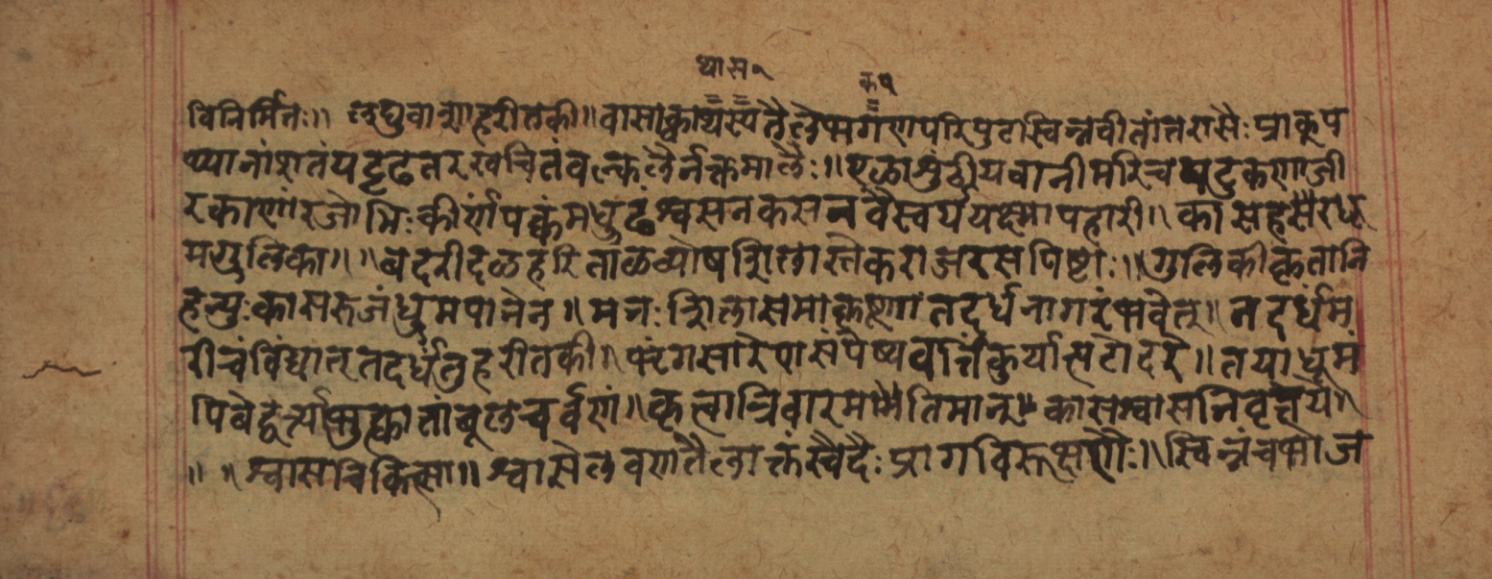 थास२
कष
विनिर्मितः॥ लघुवानाहरीतकी॥वासाक्वाथस्यतैलेमगणपरिपुटास्विन्नवीतांतरासैः प्राक्प
थ्यानांशतंयद्दृढतरखचितंवल्कलैर्नक्तमालैः॥एळाशुंठीयवानीमरिचपटुकणाजी
रकाणांरजोभिःकीर्णपक्कंमधुढंश्वसनकसनवैस्वर्ययक्ष्मापहारी॥कासहसैरधू
मगुलिका॥॥बदरीदळहरिताळव्योषशिलास्तेकराजरसपिष्टाः॥गुलिकीकृतानि
हन्युःकासरुजंधुमपानेन॥मनःशिलासमाकृष्णातदर्धंनागरंभवेत्॥तदर्धंम
रीचंविंद्यात्ततदर्धंतुहरीतकी॥भृंगसारेणसंपेष्यवर्त्तिंकुर्यात्पटोदरे॥तयाधूमं
पिबेद्वर्त्याभुक्त्वातांबूलचर्वणं॥कृत्वात्रिवारमभ्येतिमान्॥कासश्वासनिवृत्तये॥
॥॥श्वासचिकित्सा॥श्वासेलवणतैलाक्तंस्वेदैःप्रागविरूक्षणैः॥स्विन्नंचभोज